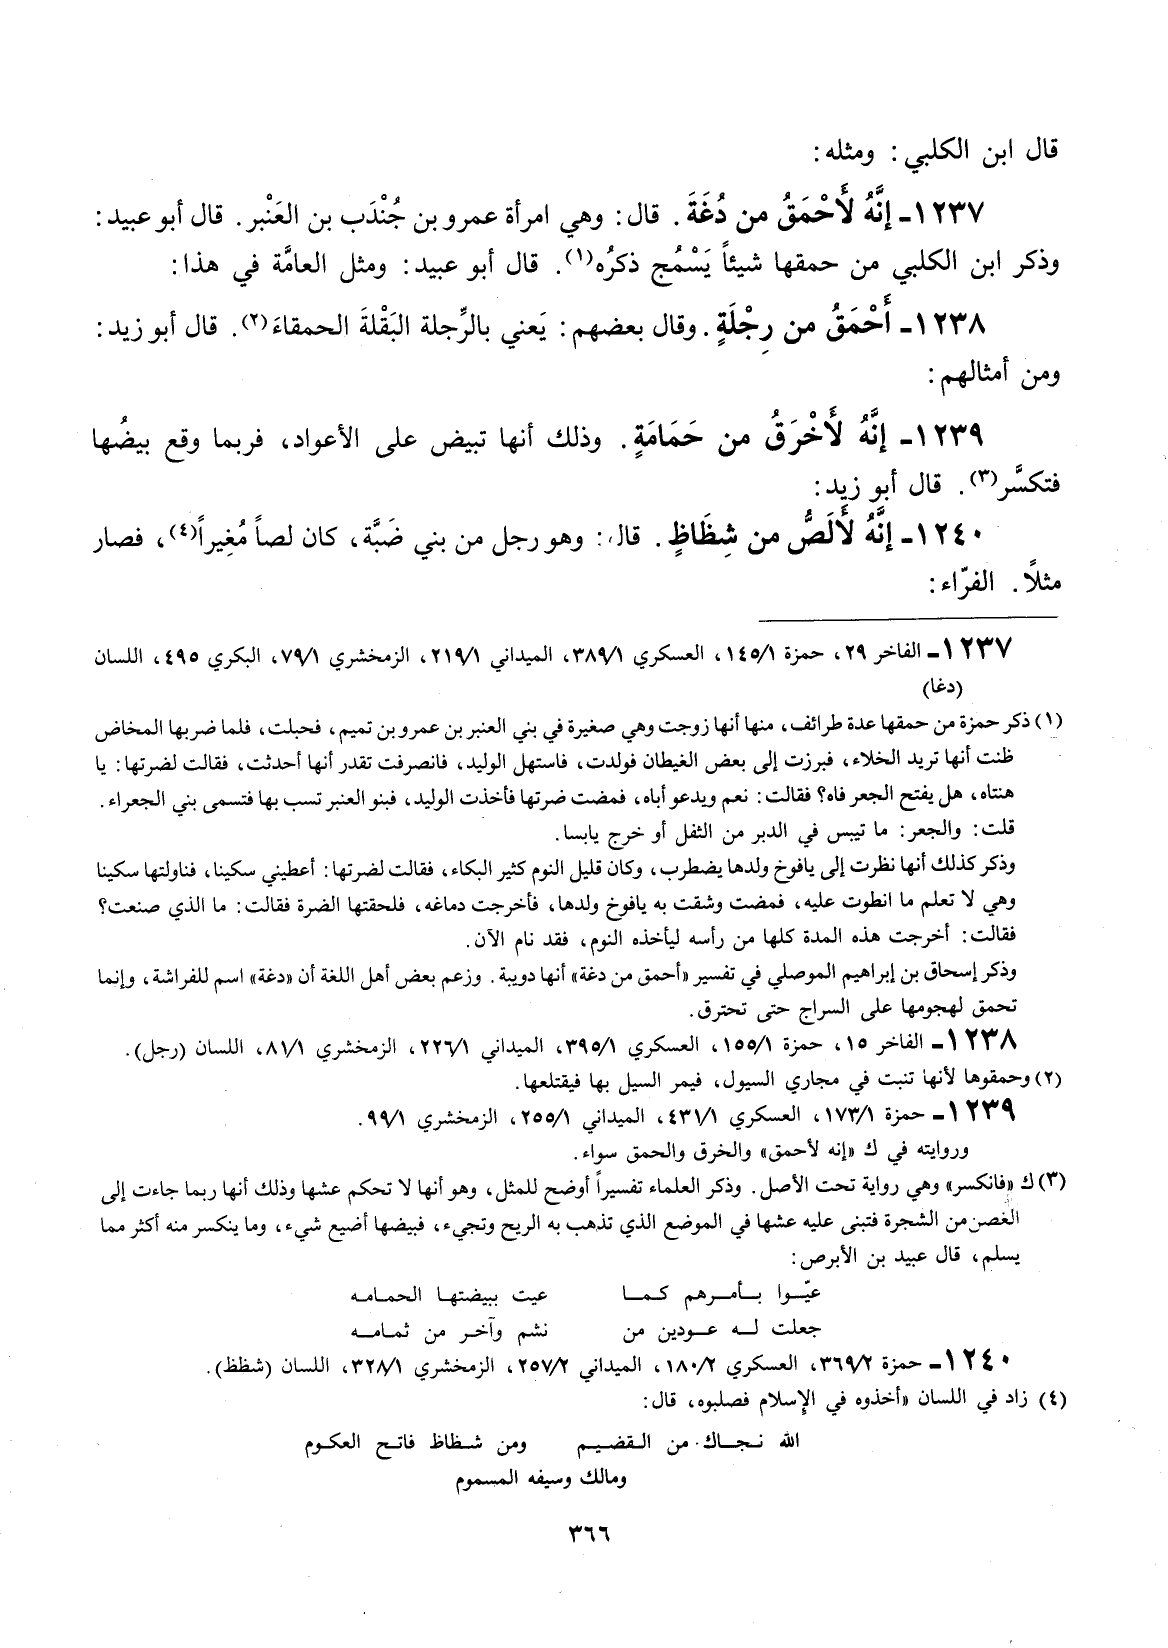 قال ابن الكلبي: ومثله:
١٢٣٧ـ إنَّهُ لَأَحْمَقُ من دُغَةَ. قال: وهي امرأة عمرو بن جُنْدَب بن العَنْبر. قال أبو عبيد:
وذكر ابن الكلبي من حمقها شيئاً يَسْمُج ذكرُه(١). قال أبو عبيد: ومثل العامَّة في هذا:
١٢٣٨ـ أَحْمَقُ من رِجْلَةٍ. وقال بعضهم: يَعني بالرِّجلة البَقْلةَ الحمقاءَ(٢). قال أبو زيد:
ومن أمثالهم:
١٢٣٩ـ إنَّهُ لَأَخْرَقُ من حَمَامَةٍ. وذلك أنها تبيض على الأعواد، فربما وقع بيضُها
فتكسَّر(٣). قال أبو زيد:
١٢٤٠ـ إنَّهُ لَأَلَصُّ من شِظَاظٍ. قال: وهو رجل من بني ضَبَّة، كان لصاً مُغِيراً(٤)، فصار
مثلًا. الفرّاء:
١٢٣٧ـ الفاخر ٢٩، حمزة ١/١٤٥، العسكري ١/٣٨٩، الميداني ١/٢١٩، الزمخشري ١/٧٩، البكري ٤٩٥، اللسان
(دغا)
(١) ذكر حمزة من حمقها عدة طرائف، منها أنها زوجت وهي صغيرة في بني العنبر بن عمرو بن تميم، فحبلت، فلما ضربها المخاض
ظنت أنها تريد الخلاء، فبرزت إلى بعض الغيطان فولدت، فاستهل الوليد، فانصرفت تقدر أنها أحدثت، فقالت لضرتها: يا
هنتاه، هل يفتح الجعر فاه؟ فقالت: نعم ويدعو أباه، فمضت ضرتها فأخذت الوليد، فبنو العنبر تسب بها فتسمى بني الجعراء.
قلت: والجعر: ما تيبس في الدبر من الثفل أو خرج يابسا.
وذكر كذلك أنها نظرت إلى يافوخ ولدها يضطرب، وكان قليل النوم كثير البكاء، فقالت لضرتها: أعطيني سكينا، فناولتها سكينا
وهي لا تعلم ما انطوت عليه، فمضت وشقت به يافوخ ولدها، فأخرجت دماغه، فلحقتها الضرة فقالت: ما الذي صنعت؟
فقالت: أخرجت هذه المدة كلها من رأسه ليأخذه النوم، فقد نام الآن.
وذكر إسحاق بن إبراهيم الموصلي في تفسير «أحمق من دغة» أنها دويبة. وزعم بعض أهل اللغة أن «دغة» اسم للفراشة، وإنما
تحمق لهجومها على السراج حتى تحترق.
١٢٣٨ـ الفاخر ١٥، حمزة ١/١٥٥، العسكري ١/٣٩٥، الميداني ١/٢٢٦، الزمخشري ١/٨١، اللسان (رجل).
(٢) وحمقوها لأنها تنبت في مجاري السيول، فيمر السيل بها فيقتلعها.
١٢٣٩ـ حمزة ١/١٧٣، العسكري ١/٤٣١، الميداني ١/٢٥٥، الزمخشري ١/٩٩.
وروايته في ك «إنه لأحمق» والخرق والحمق سواء.
(٣) ك «فانكسر» وهي رواية تحت الأصل. وذكر العلماء تفسيراً أوضح للمثل، وهو أنها لا تحكم عشها وذلك أنها ربما جاءت إلى
الغصن من الشجرة فتبنى عليه عشها في الموضع الذي تذهب به الريح وتجيء، فبيضها أضيع شيء، وما ينكسر منه أكثر مما
يسلم، قال عبيد بن الأبرص:
عيّوا بأمرهم كما عيت ببيضتها الحمامه
جعلت له عودين من نشم وآخر من ثمامه
١٢٤٠ـ حمزة ٢/٣٦٩، العسكري ٢/١٨٠، الميداني ٢/٢٥٧، الزمخشري ١/٣٢٨، اللسان (شظظ).
(٤) زاد في اللسان «أخذوه في الإسلام فصلبوه، قال:
الله نجاك من القضيم ومن شظاظ فاتح العكوم
ومالك وسيفه المسموم
٣٦٦